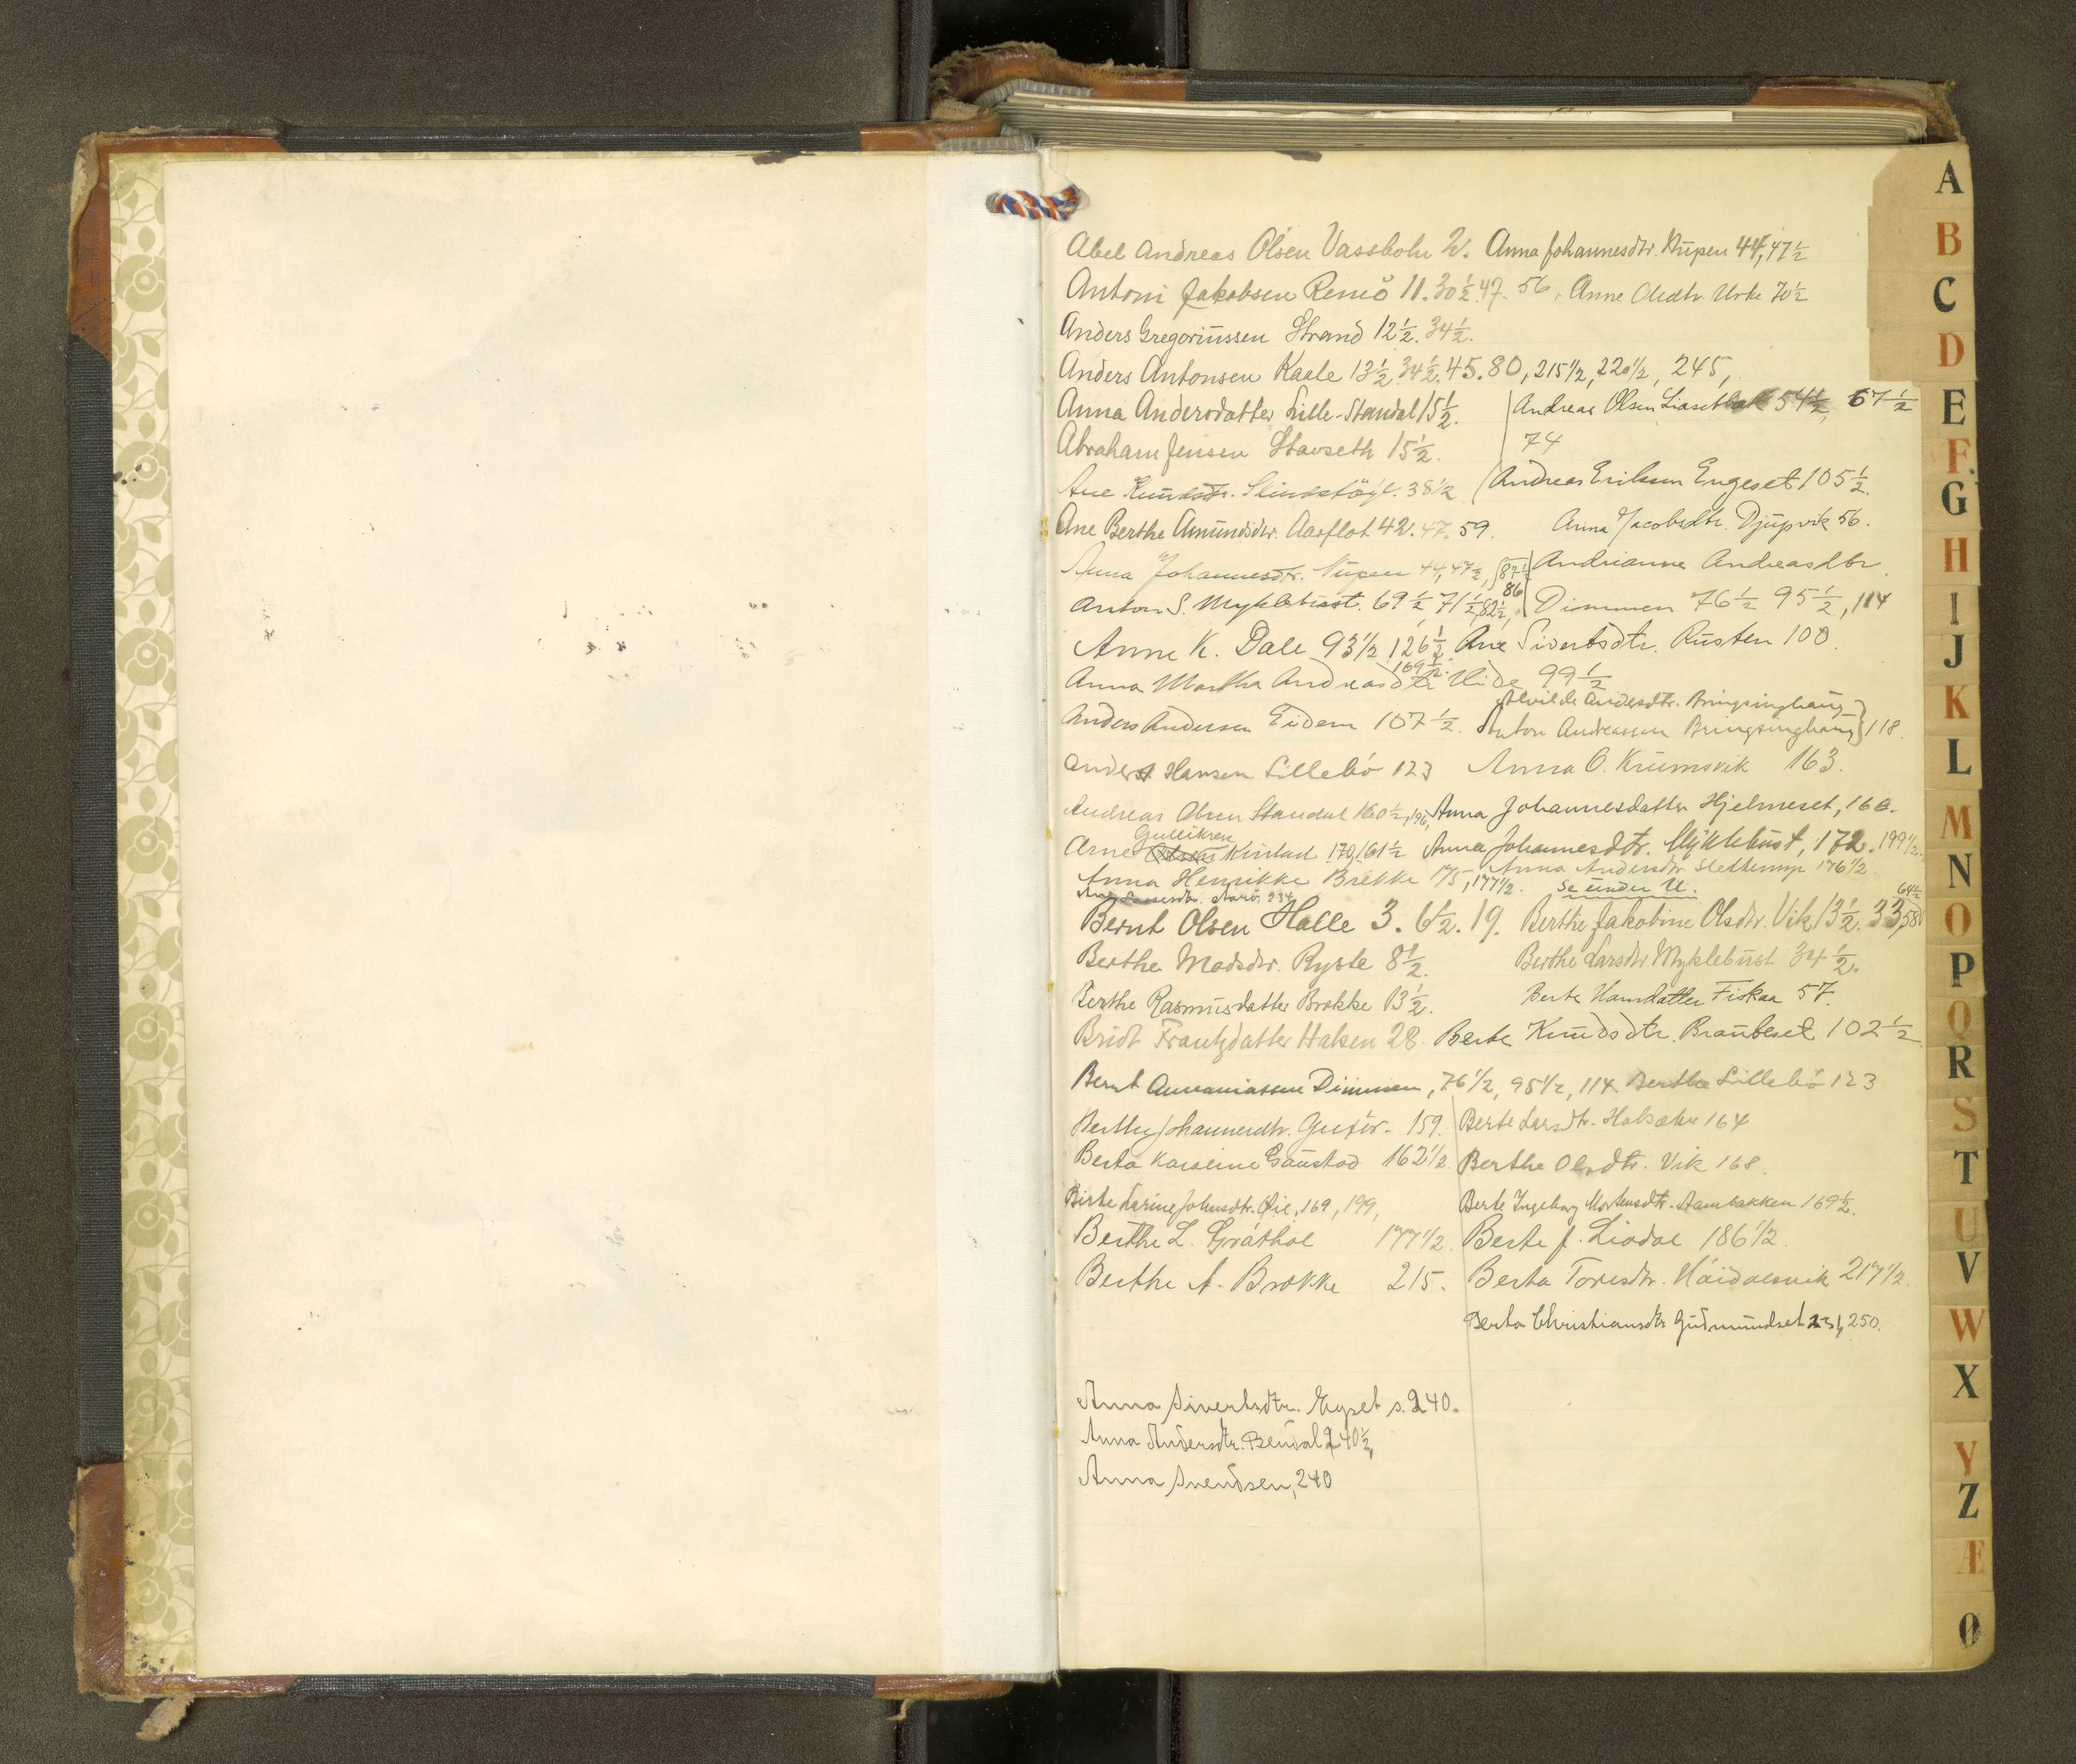 Abel Andreas Olsen Vassbotn 2. Anna Johannesdtr. Nupen 44, 47½
Antoni Jakobsen Remö 11. 30½. 47. 56, Anne Oledtr. Urke 70½
Anders Gregoriussen Strand 12½. 34½.
Anders Antonsen Kaale 13½. 34½. 45. 80, 215½, 220½, 245,
Anna Andersdatter Lille-Standal 15½. Andreas Olsen 54½, 67½
Abraham Jensen Stavseth 15½. 74
Ane Knudsdtr. 38½ Andreas Eriksen Engeset 105½.
Ane Berthe Amundsdtr. Aarflot 42. 47. 59. Anna Jacobsdtr. Djupvik 56.
Anna Johannesdtr. Nupen 44, 47½, 87½ Andrianne Andreasdtr
Anton S. Myklebust. 69½ 71½, 82½, 86 Dimmen 76½ 95½, 114
Anne K. Dale 93½ 126½ Ane Sivertsdtr. Rusten 100
169½.
Anna Martha Andreasdtr Hide 99½
Alvilde Andersdtr. Bringsinghaug
Anders Andersen Eidem 107½. Anton Andreassen Bringsinghaug 118.
Anders Hansen Lillebö 123 Anna O. Krumsvik 163.
Andreas Olsen Standal 160½, 196, Anna Johannesdatter Hjelmeset, 166.
Gulliksen
Arne 170, 161½ Anna Johannesdtr. Myklebust, 172. 199½.
Anna Andersdtr 176½
Anna Henrikke Brekke 175, 177½. Se under U.
234
64½
Bernt Olsen Halle 3. 6½. 19. Berthe Jakobine Olsdtr. Vik 13½. 33, 58
Berthe Madsdtr. Ryste 8½. Berthe Larsdtr. Myklebust 34½.
Berthe Rasmusdatter Brekke 13½. Berte Hansdatter Fiskaa 57.
Bridt Frantzdatter Halsen 28. Berte Knudsdtr. 102½
Bernt Annaniassen Dimmen, 76½, 95½, 114. Berthe Lillebö 123
Berthe Johannesdtr. 159. Berte Larsdtr. 164
Berta Karoline Gaustad 162½. Berthe Olsdtr. Vik 168.
Birte Karine Johnsdtr. Öie, 169, 199, Berte Ingeborg Mortensdtr. 169½.
Berthe L. 177½. Berte J. Liadal 186½.
Berthe A. Brekke 215. Berta Toresdtr. 217½.
Berta Christiansdtr Gudmundset 231, 250.
Anna Sivertsdtr. Myset s. 240.
Anna Andersdtr. 240½,
Anna Svendsen, 240
A
B
C
D
E
F
G
H
I
J
K
L
M
N
O
P
Q
R
S
T
U
V
W
X
Y
Z
Æ
Ø